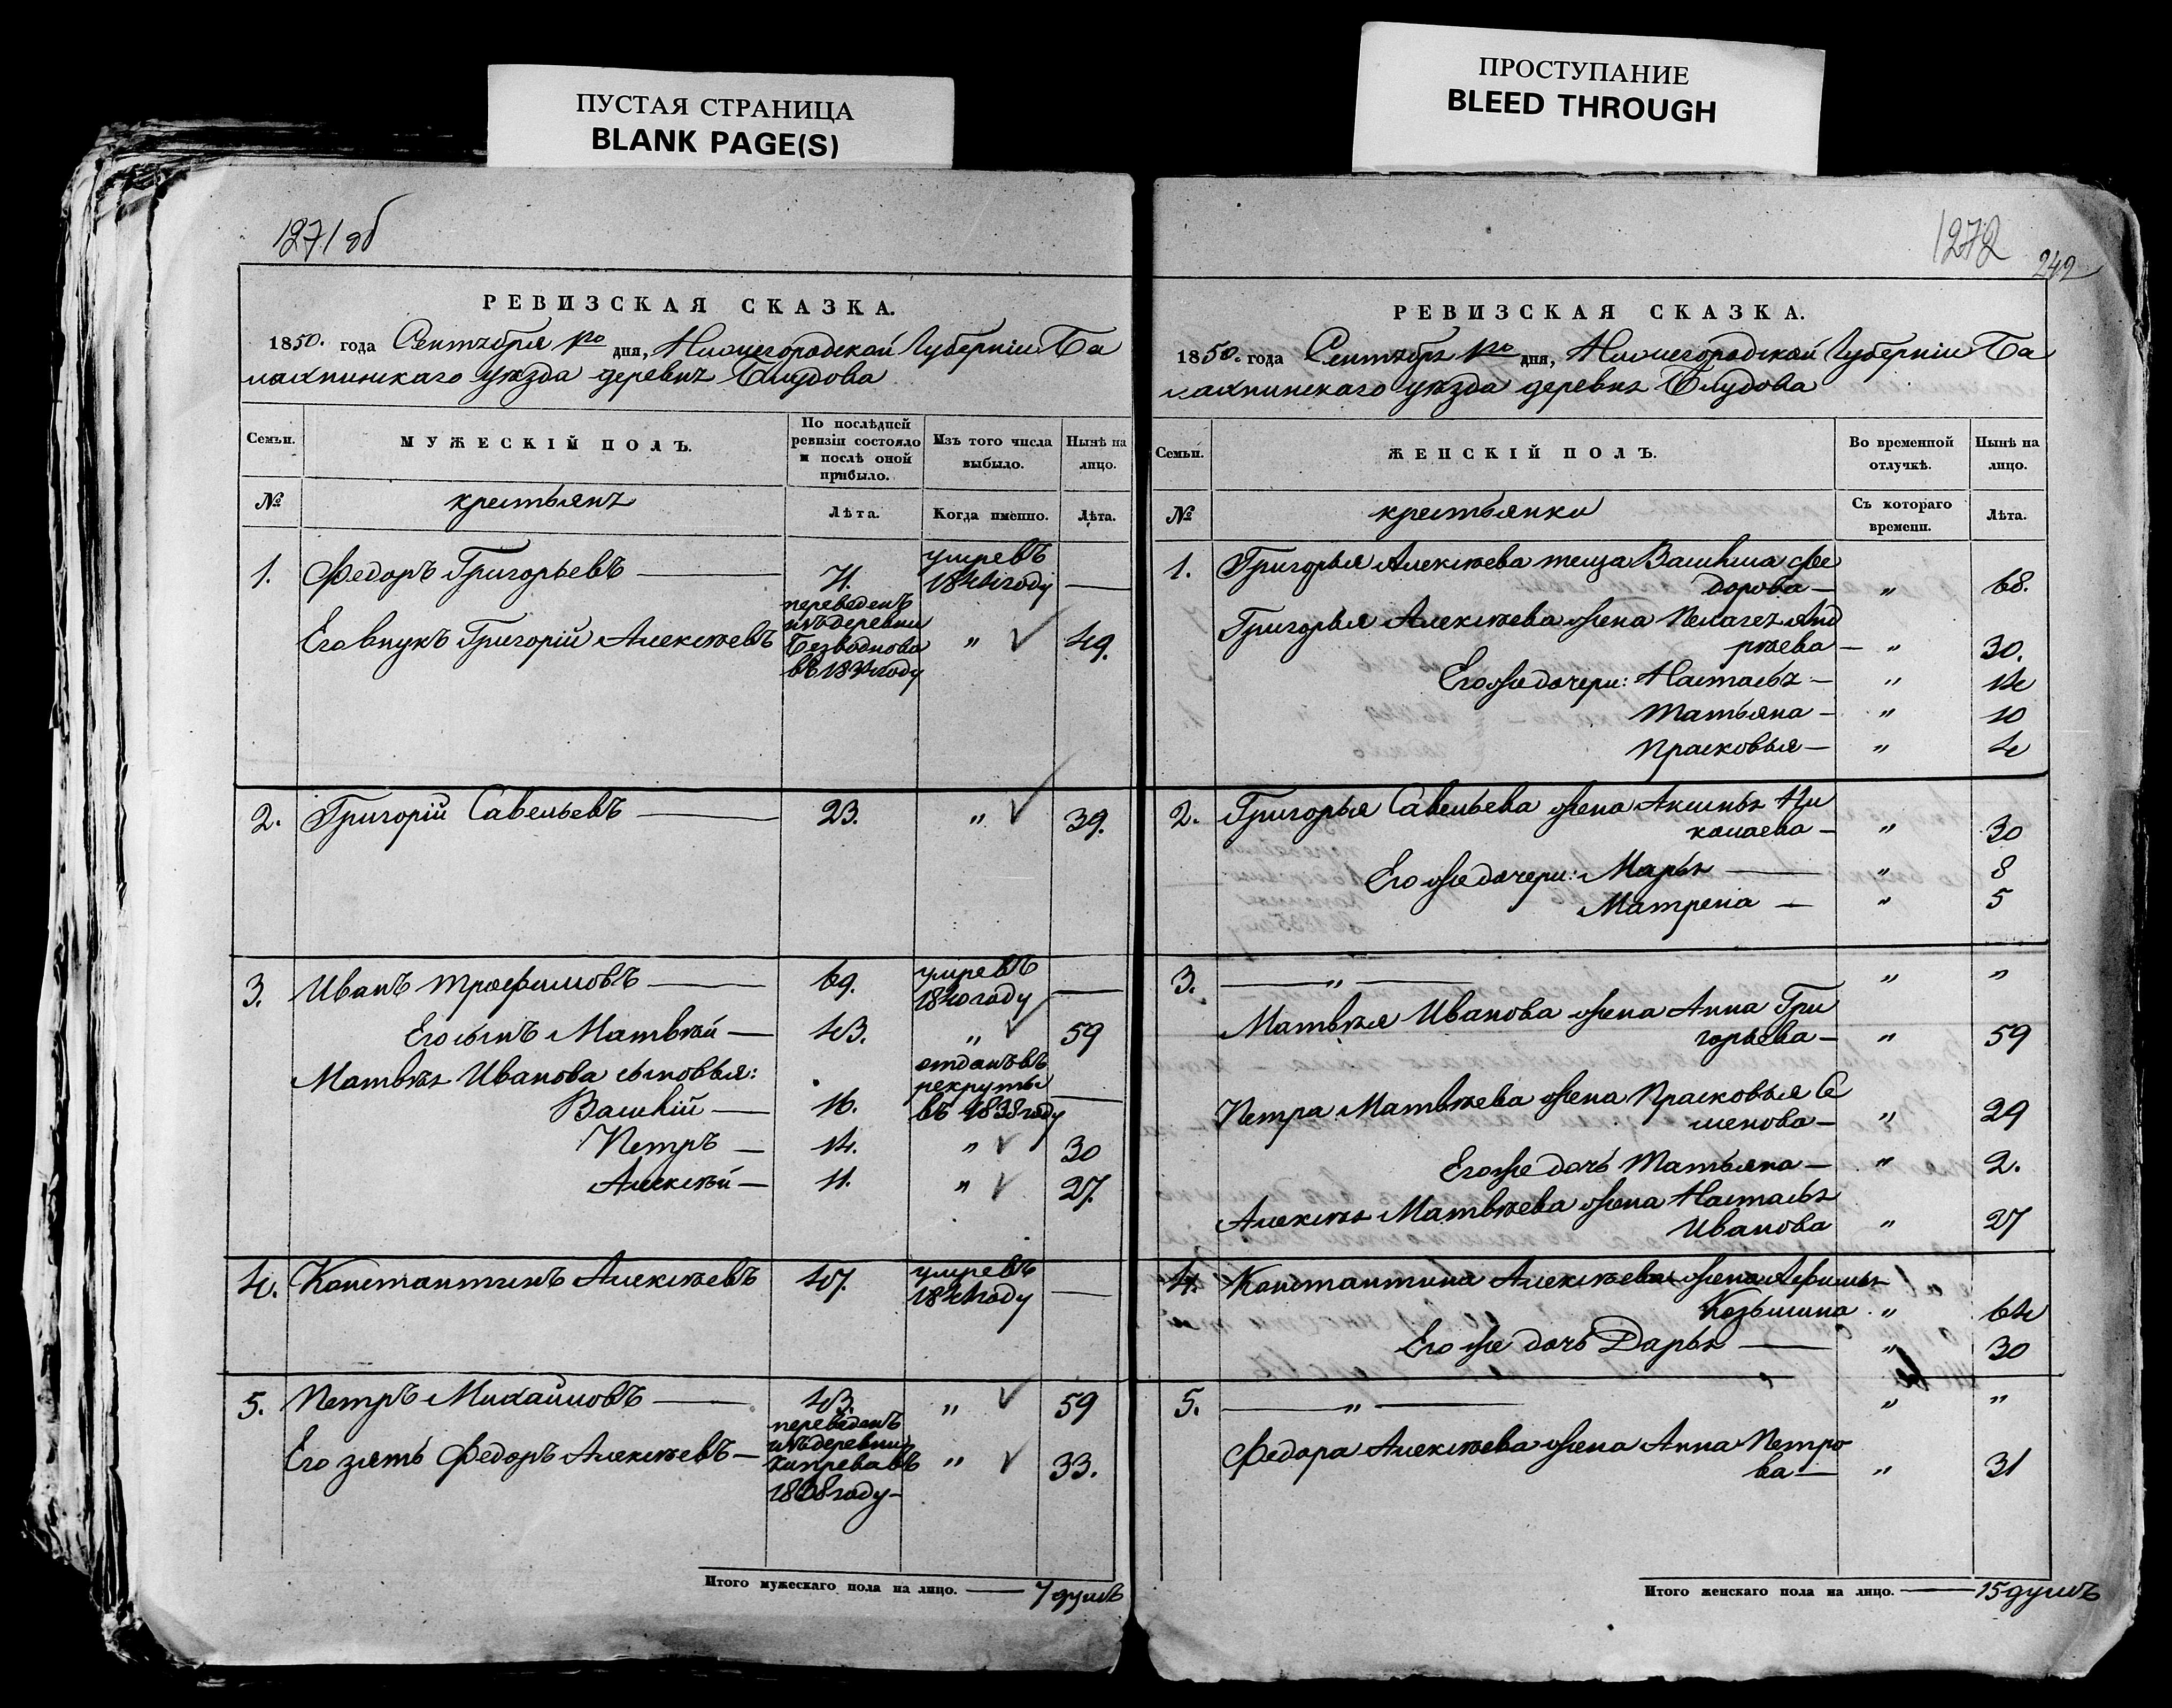 ПУСТАЯ СТРАНИЦА
BLANK PAGE(S)
ПРОСТУПАНИЕ
BLEED THROUGH
1271 об
РЕВИЗСКАЯ СКАЗКА.
1850. года Сентября 1го дня, Нижегородской Губерніи Ба
лахнинскаго уѣзда деревнѣ Блудова
Семьи.
МУЖЕСКІЙ ПОЛЪ.
По послѣдней
ревизіи состояло
и послѣ оной
прибыло.
Изъ того числа
выбыло.
Нынѣ на
лицо.
№
крестьянъ
Лѣта.
Когда именно.
Лѣта.
1. Федоръ Григорьевъ — 71. умревъ
1844 году —
Его внукъ Григорій Алексѣевъ
переведенъ
изъ деревни
Безводнова
въ 1834 году
" 49.
2. Григорій Савельевъ — 23. " 39.
3. Иванъ Трофимовъ — 69. умревъ
1840 году —
Его сынъ Матвѣй — 43. " 59
Матвѣя Иванова сыновья:
Василій — 16. отданъ въ
рекруты
въ 1838 году —
Петръ — 14. " 30
Алексѣй — 11. " 27.
4. Константинъ Алексѣевъ 47. умревъ
1841 году —
5. Петръ Михайловъ — 43. " 59
Его зять Федоръ Алексѣевъ —
переведенъ
изъ деревни
въ
1838 году —
" 33.
Итого мужескаго пола на лицо. — 7 душъ
1272
242
РЕВИЗСКАЯ СКАЗКА.
1850. года Сентября 1го дня, Нижегородской Губерніи Ба
лахнинскаго уѣзда деревнѣ Блудова
Семьи.
ЖЕНСКІЙ ПОЛЪ.
Во временной
отлучкѣ.
Нынѣ на
лицо.
№
крестьянки
Съ котораго
времени.
Лѣта.
1. Григорья Алексѣева теща Васи­лиса Фе
дорова — " 68.
Григорья Алексѣева жена Пелагея Анд
рѣева — " 30.
Его же дочери: Настасья — " 14
Татьяна — " 10
Прасковья — " 4
2. Григорья Савельева жена Аксинья Ни
колаева — " 30
Его же дочери: Марья — " 8
Матрена — " 5
3. — " — " "
Матвѣя Иванова жена Анна Гри
горьева — " 59
Петра Матвѣева жена Прасковья Се
менова — " 29
Его же дочь Татьяна — " 2.
Алексѣя Матвѣева жена Настасья
Иванова " 27
4. Константина Алексѣева жена Афимья
Козьмина " 64
Его же дочь Дарья — " 30
5. — " — " "
Федора Алексѣева жена Анна Петро
ва — " 31
Итого женскаго пола на лицо. — 15 душъ